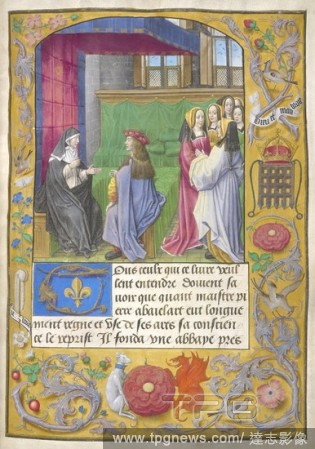 Dieu et mon droit
Ous ceulx qui ce livre veul
lent entendre doivent sa
voir que quant maistre pi
erre abaelart eut longue
ment regne et use de ses ars sa conscien
ce le reprist Il fonda une abbaye pres
TPG
www.tpgnews.com/ 達志影像